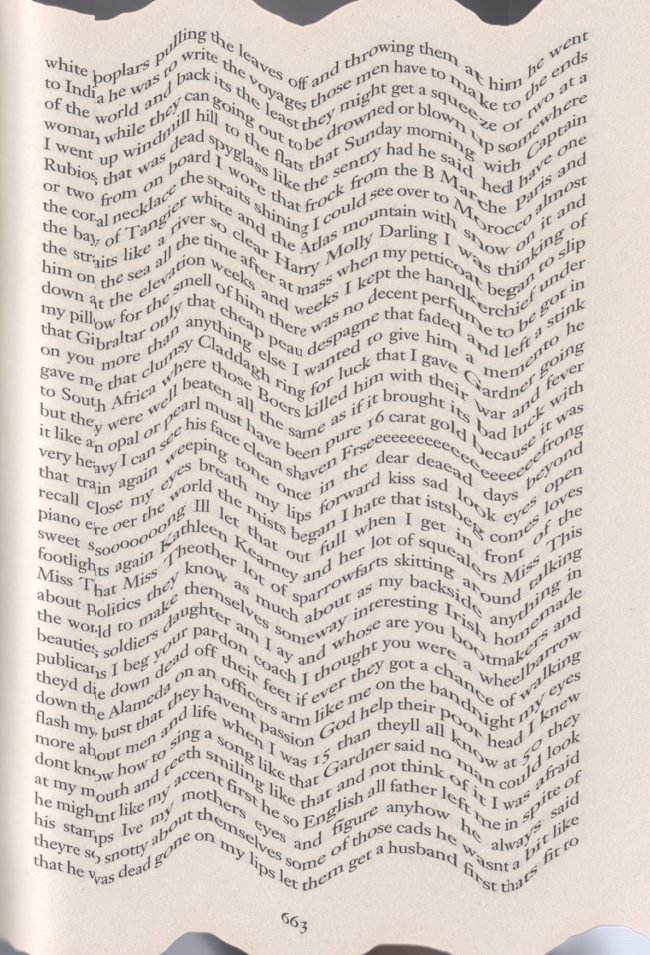 white poplars pulling the leaves off and throwing them at him he went
to India he was to write the voyages those men have to make to the ends
of the world and back its the least they might get a squeeze or two at a
woman while they can going out to be drowned or blown up somewhere
I went up windmill hill to the flats that Sunday morning with Captain
Rubios that was dead spyglass like the sentry had he said hed have one
or two from on board I wore that frock from the B Marche Paris and
the coral necklace the straits shining I could see over to Morocco almost
the bay of Tangier white and the Atlas mountain with snow on it and
the straits like a river so clear Harry Molly Darling I was thinking of
him on the sea all the time after at mass when my petticoat began to slip
down at the elevation weeks and weeks I kept the handkerchief under
my pillow for the smell of him there was no decent perfume to be got in
that Gibraltar only that cheap peau despagne that faded and left a stink
on you more than anything else I wanted to give him a memento he
gave me that clumsy Claddagh ring for luck that I gave Gardner going
to South Africa where those Boers killed him with their war and fever
but they were well beaten all the same as if it brought its bad luck with
it like an opal or pearl must have been pure 16 carat gold because it was
very heavy I can see his face clean shaven Frseeeeeeeeeeeeeeeeeeeefrong
that train again weeping tone once in the dear deaead days beyond
recall close my eyes breath my lips forward kiss sad look eyes open
piano ere oer the world the mists began I hate that istsbeg comes loves
sweet ssooooooong Ill let that out full when I get in front of the
footlights again Kathleen Kearney and her lot of squealers Miss This
Miss That Miss Theother lot of sparrowfarts skitting around talking
about politics they know as much about as my backside anything in
the world to make themselves someway interesting Irish homemade
beauties soldiers daughter am I ay and whose are you bootmakers and
publicans I beg your pardon coach I thought you were a wheelbarrow
theyd die down dead off their feet if ever they got a chance of walking
down the Alameda on an officers arm like me on the bandnight my eyes
flash my bust that they havent passion God help their poor head I knew
more about men and life when I was 15 than theyll all know at 50 they
dont know how to sing a song like that Gardner said no man could look
at my mouth and teeth smiling like that and not think of it I was afraid
he mightnt like my accent first he so English all father left me in spite of
his stamps Ive my mothers eyes and figure anyhow he always said
theyre so snotty about themselves some of those cads he wasnt a bit like
that he was dead gone on my lips let them get a husband first thats fit to
663